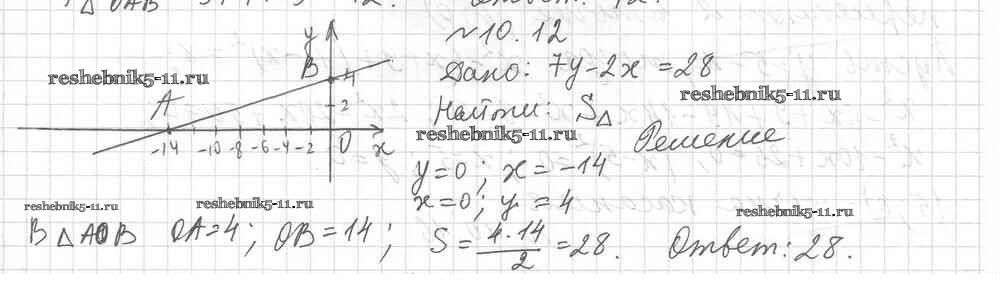 △ OAB
№10.12
Дано: 7y-2x=28
Найти: S△
Решение
y=0; x=-14
x=0; y=4
y
B 4
A 2
-14 -10 -8 -6 -4 -2 O x
В △AOB OA=4; OB=14; S = 4·14/2 = 28. Ответ: 28.
reshebnik5-11.ru
reshebnik5-11.ru
reshebnik5-11.ru
reshebnik5-11.ru
reshebnik5-11.ru
reshebnik5-11.ru